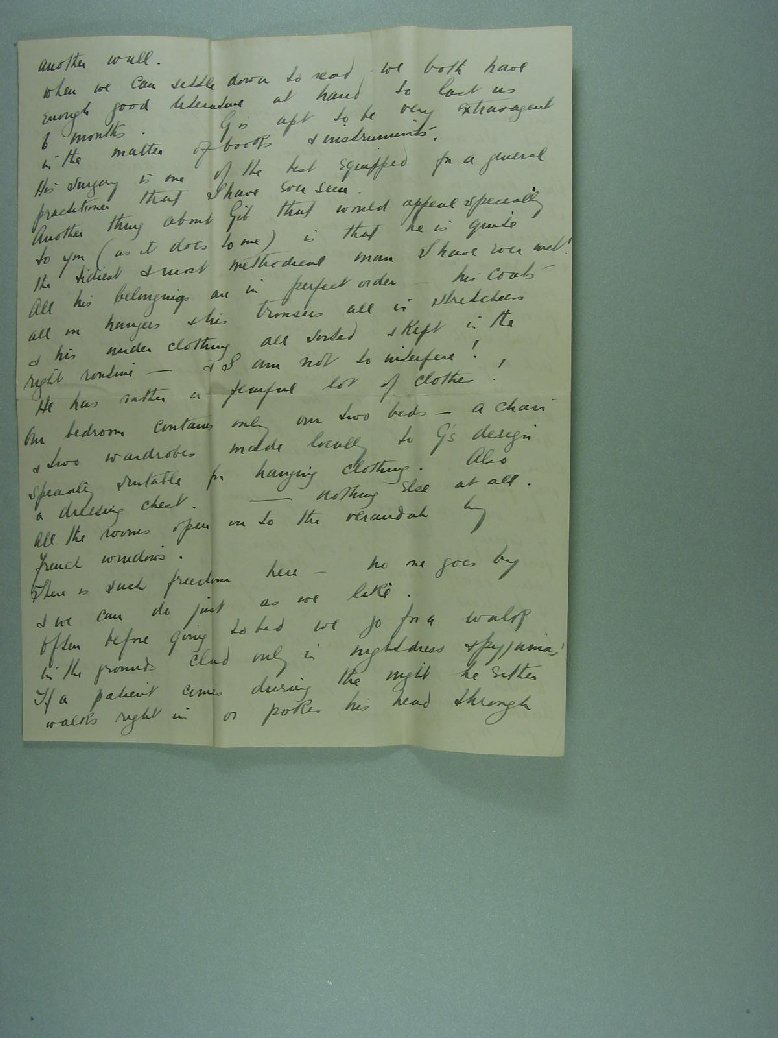 another wall.
When we can settle down to read we both have
enough good literature at hand to last us
6 months. G is apt to be very extravagent
in the matter of books & instruments.
His surgery is one of the best equipped for a general
practitioner that I have ever seen.
Another thing about Git that would appeal specially
to you (as it does to me) is that he is quite
the tidiest & most methodical man I have ever met!
All his belongings are in perfect order — his coats
all on hangers & his trousers all in stretchers
& his under clothing all sorted & kept in the
right routine — & I am not to interfere!
He has rather a fearful lot of clothes!
Our bedroom contains only our two beds — a chair
& two wardrobes made locally to G's design
specially suitable for hanging clothing. Also
a dressing chest. — nothing else at all.
All the rooms open on to the verandah by
French windows.
There is such freedom here — no one goes by
& we can do just as we like.
Often before going to bed we go for a walk
in the grounds clad only in nightdress & pyjamas!
If a patient comes during the night he either
walks right in or pokes his head through